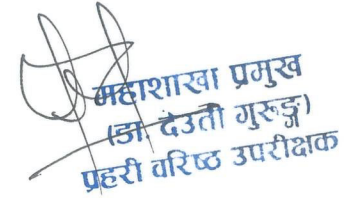 महाशाखा प्रमुख
(डा. देउती गुरुङ्ग)
प्रहरी वरिष्ठ उपरीक्षक